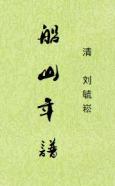 船山年譜
清 刘毓崧